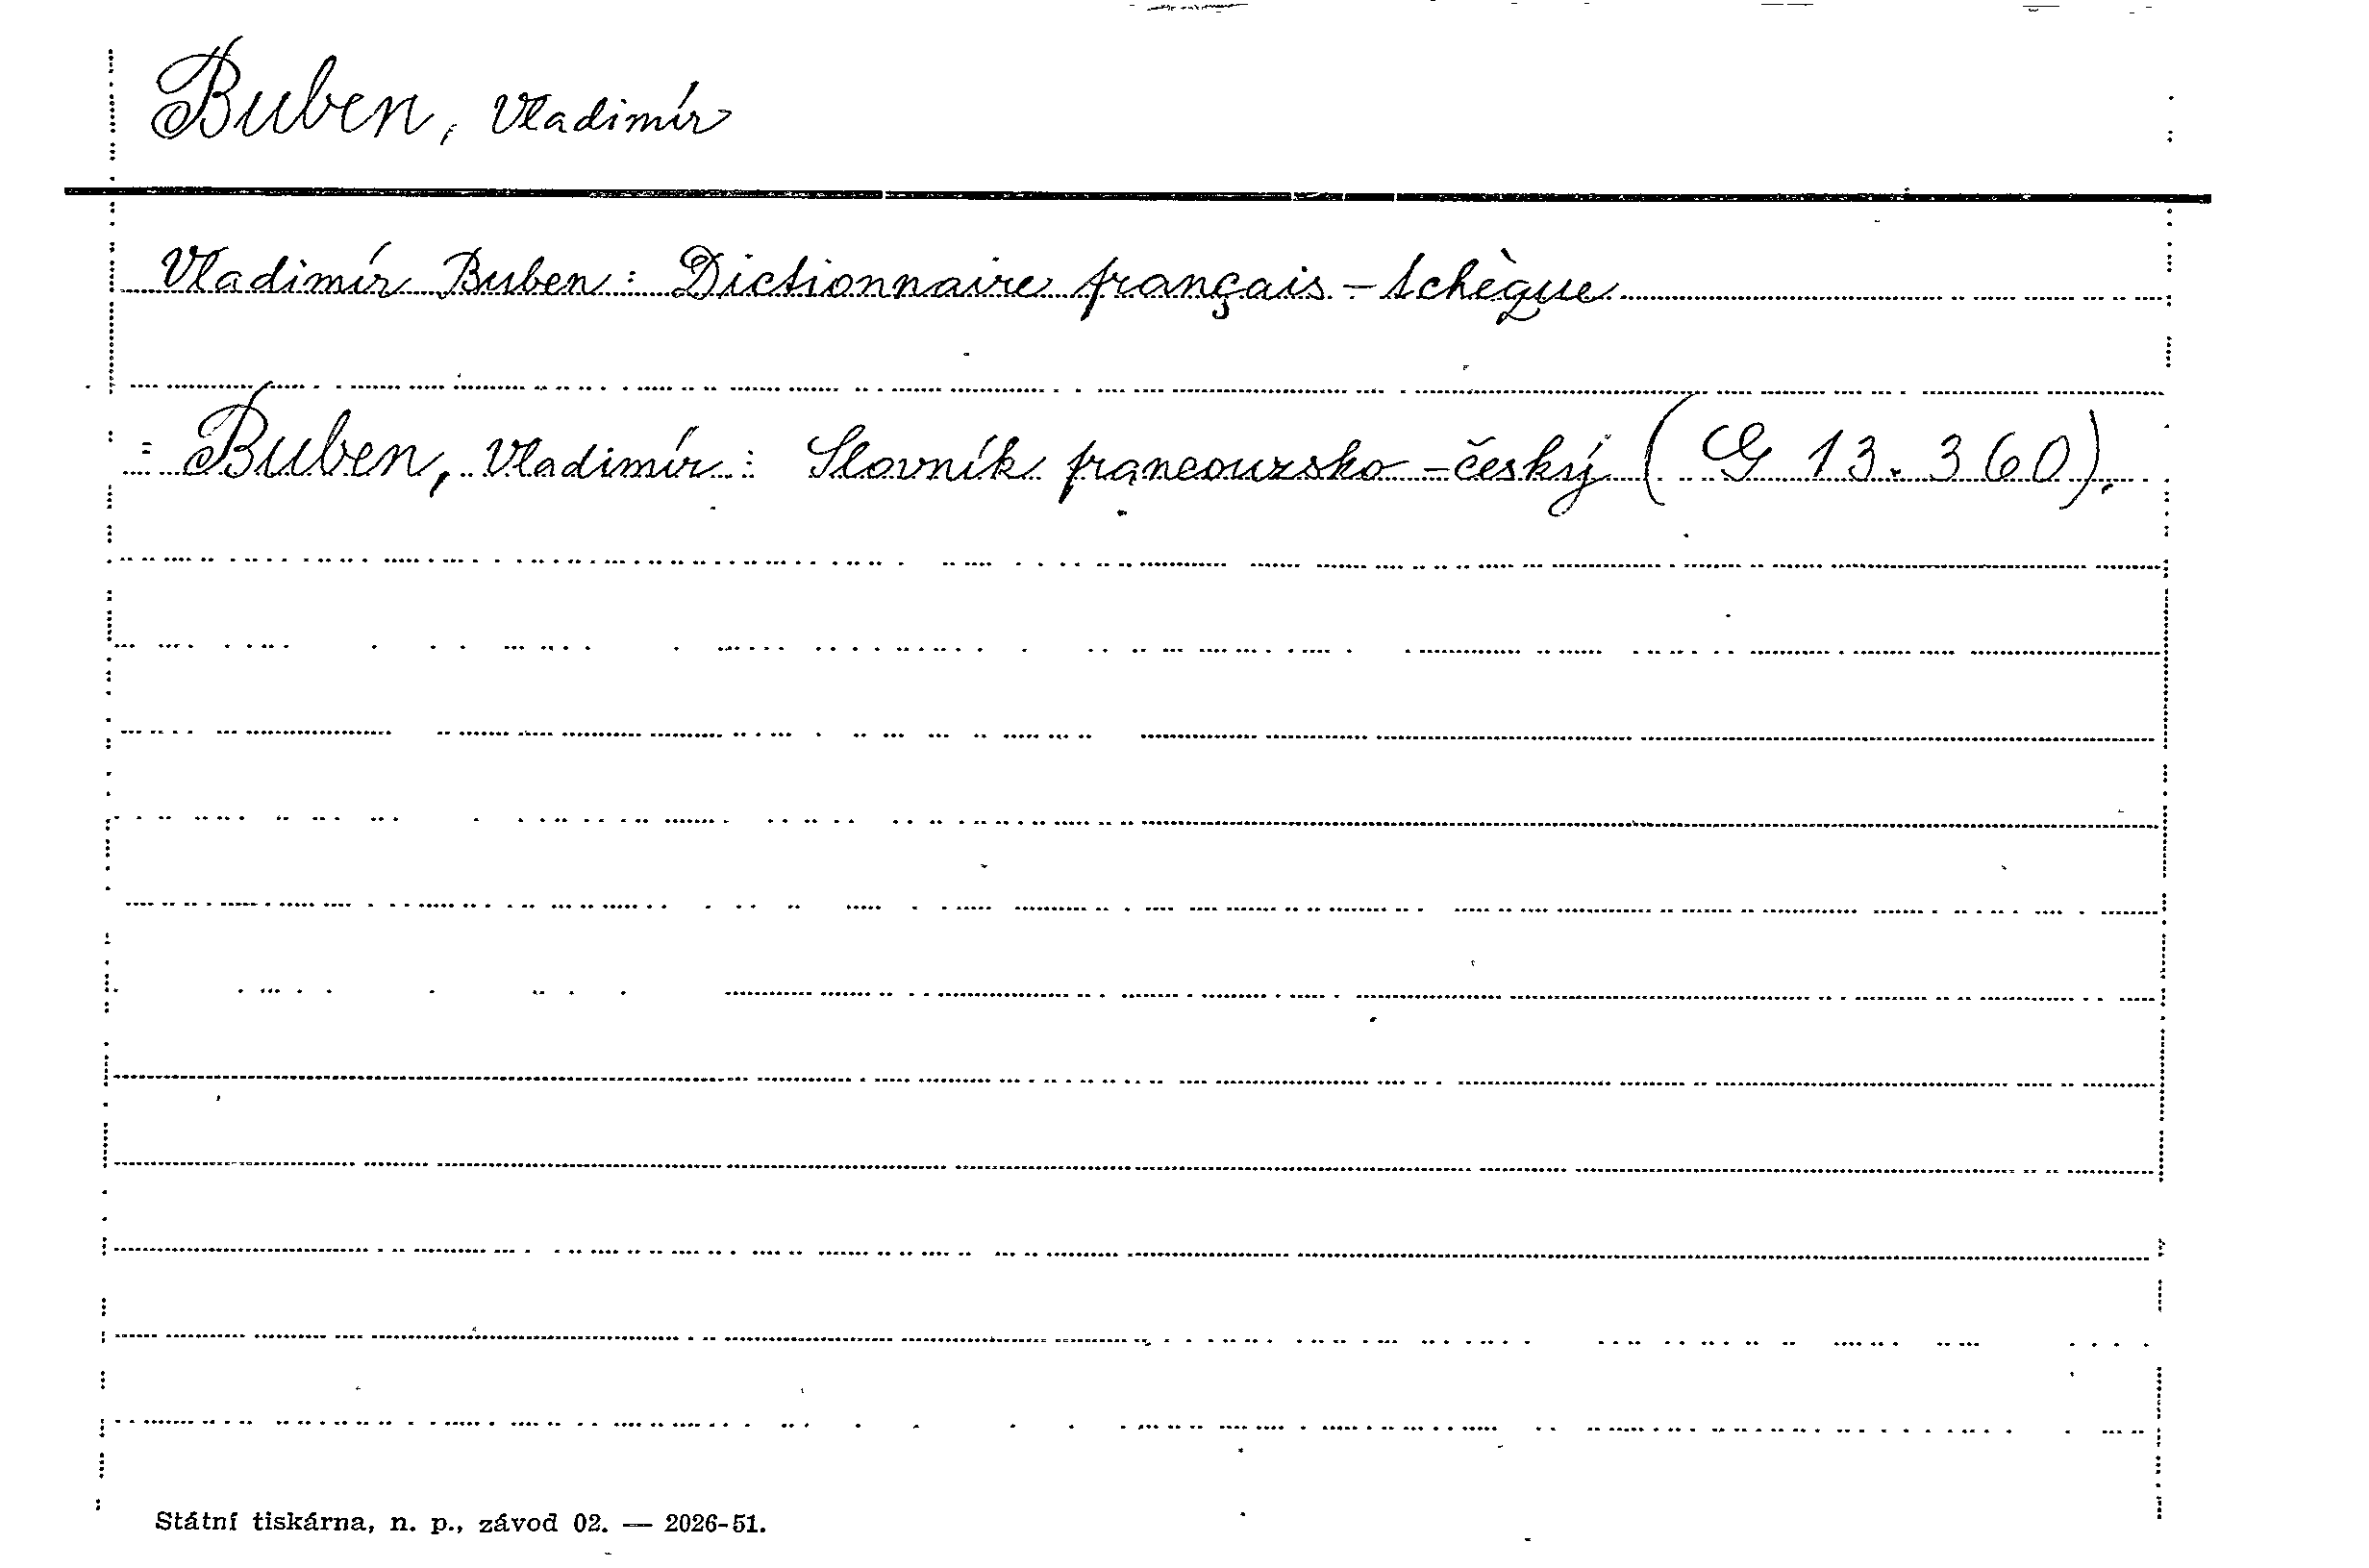 Buben, Vladimír
Vladimír Buben: Dictionnaire français-tchèque
= Buben, Vladimír: Slovník francouzsko-český (G 13.360).
Státní tiskárna, n. p., závod 02. — 2026-51.